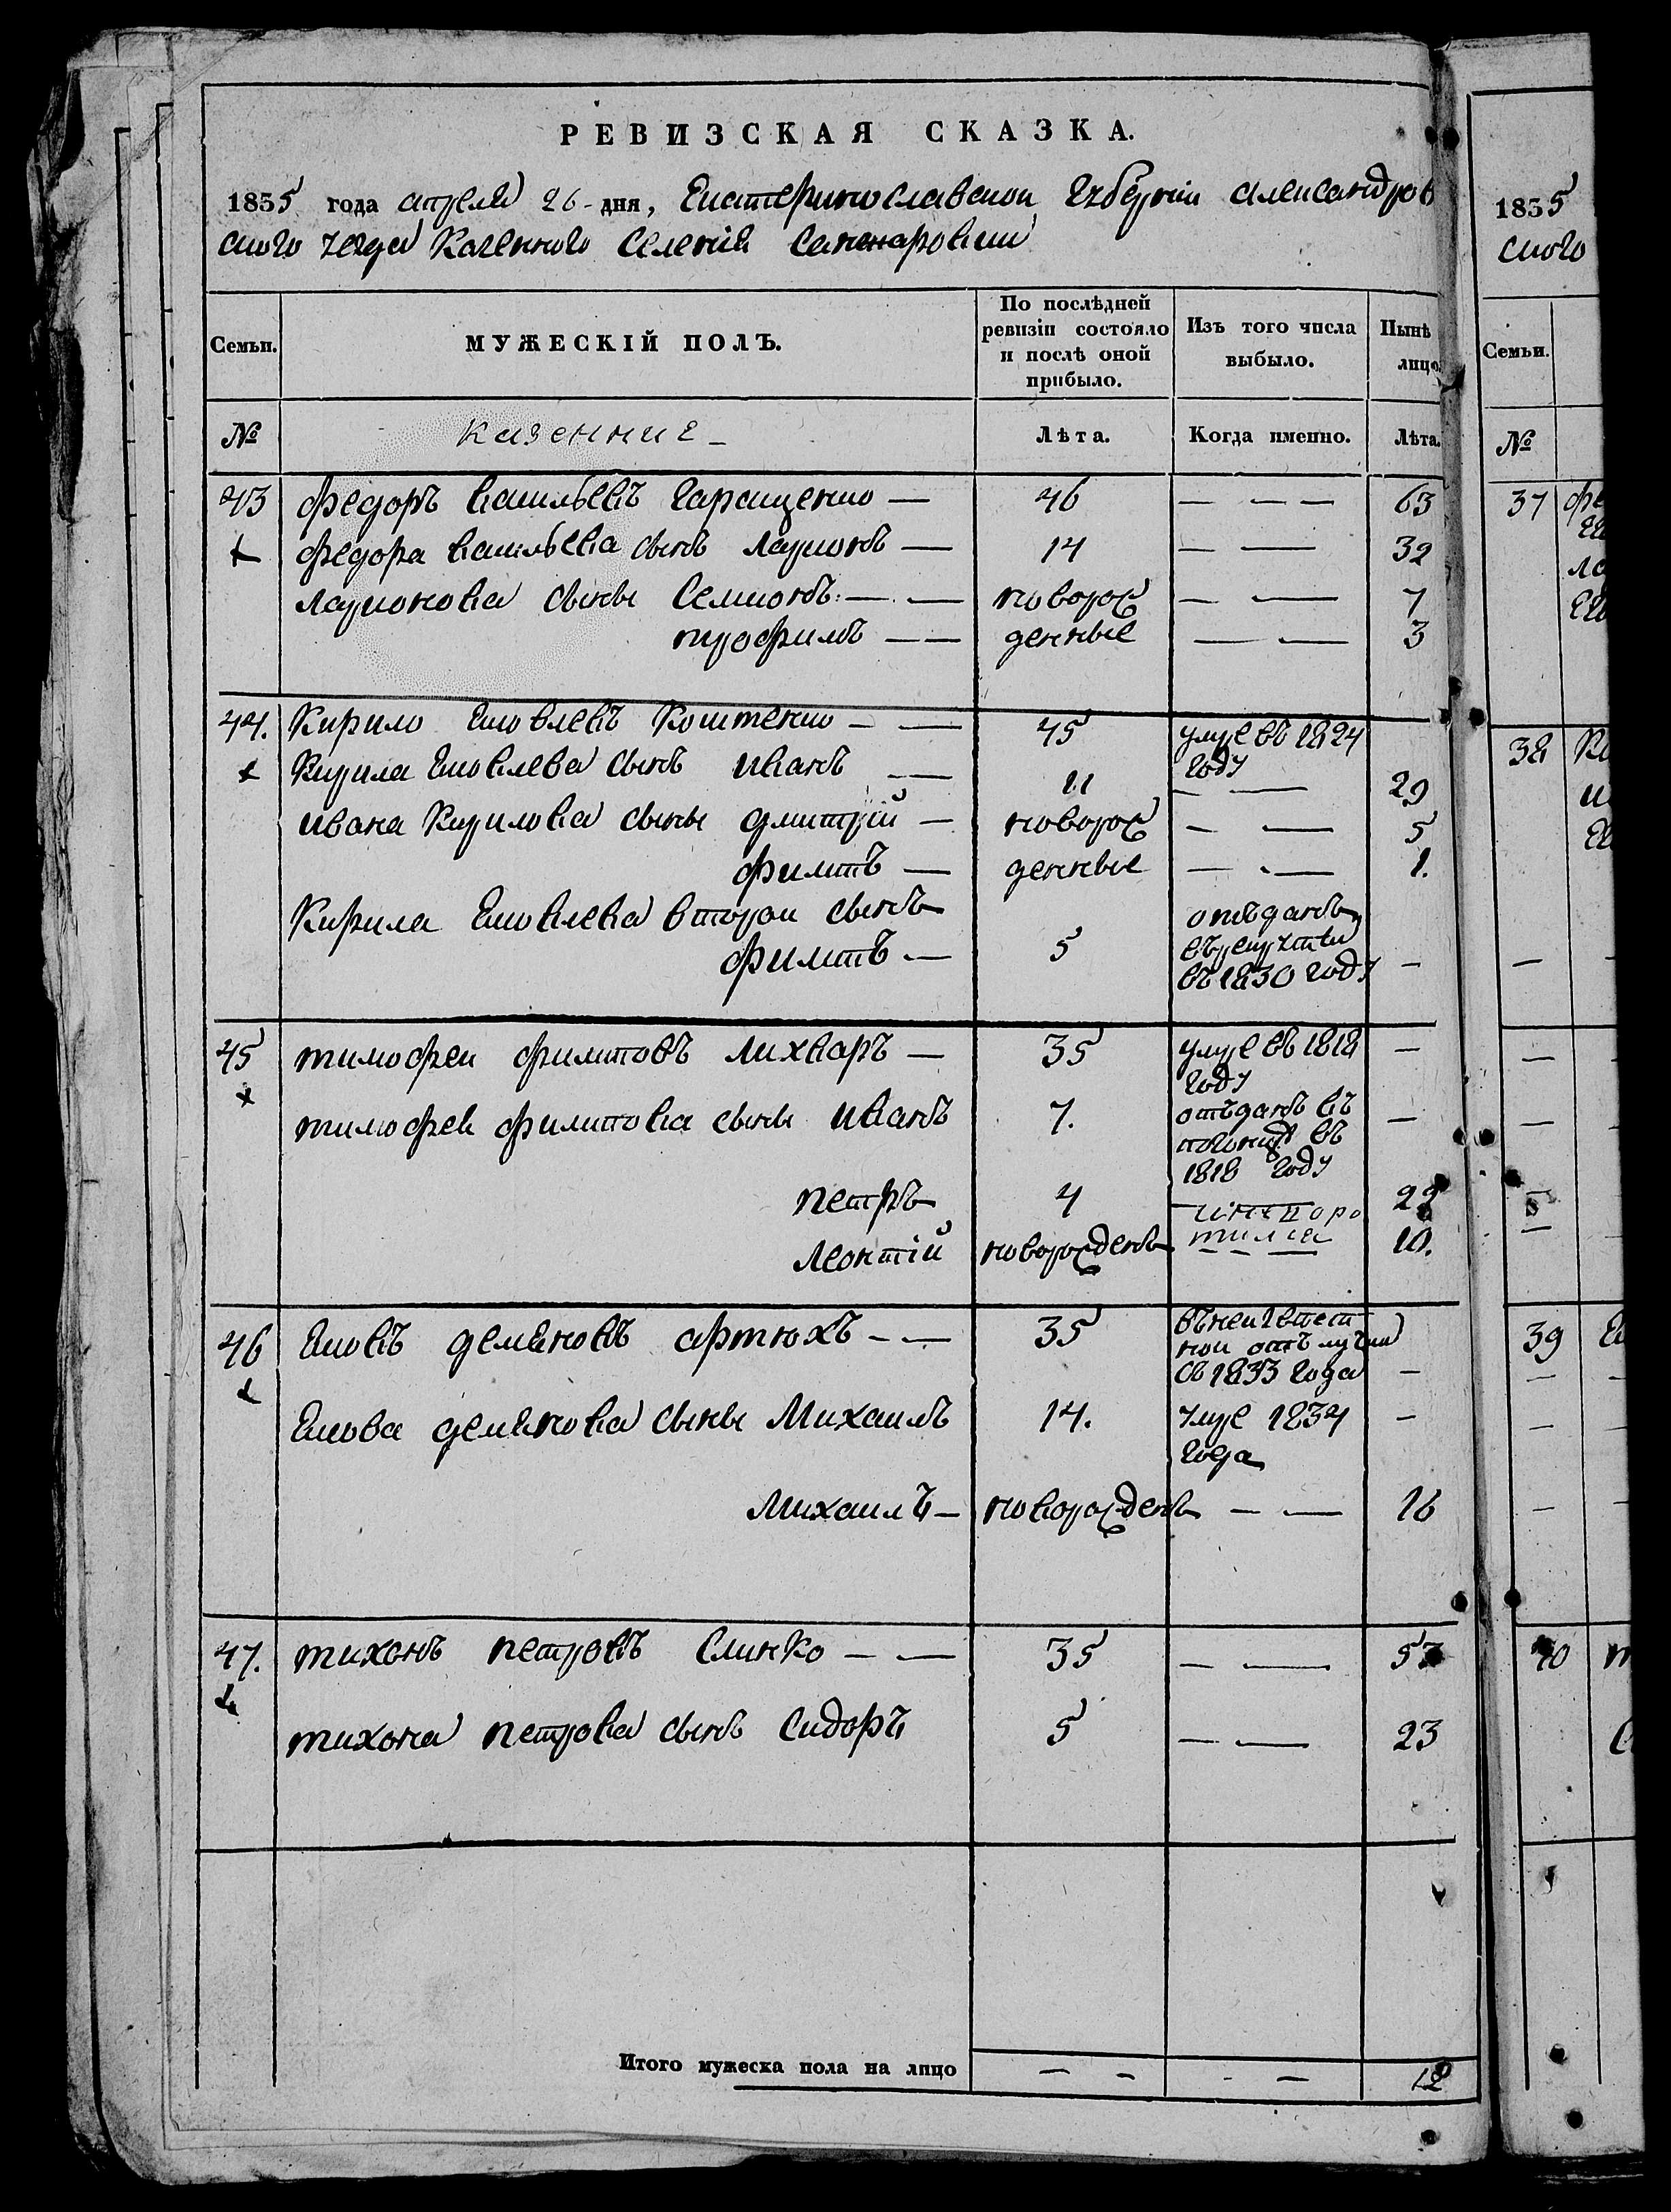 РЕВИЗСКАЯ СКАЗКА.
1835 года апреля 26 дня, Екатеринославской губернии александров
ского уезда Казенного Селения
Семьи. МУЖЕСКІЙ ПОЛЪ. По послѣдней ревизіи состояло и послѣ оной прибыло. Изъ того числа выбыло. Нынѣ лицо.
№ казенние Лѣта. Когда именно. Лѣта.
43 федоръ васильевъ Гаращенко — 46 — — — 63
федора васильева сынъ ларионъ — 14 — — 32
ларионова сыны Семионъ — — новорож — — 7
трофимъ — — денные — — 3
44. Кирило яковлевъ Коштенко — — 45 умре въ 1824 году
Кирила яковлева сынъ иванъ — 11 — — 29
ивана Кирилова сыны дмитрій — новорож — — 5
филипъ — денные — — 1.
Кирила яковлева второи сынъ
филипъ — 5 отъданъ въ рекруты въ 1830 году —
45 тимофеи филиповъ лихваръ — 35 умре въ 1818 году —
тимофея филипова сыны иванъ 7. отъданъ въ въ 1818 году —
петръ 4 22
леонтій новорожденъ — — — 10.
46 яковъ демяновъ артюхъ — — 35 въ неизвест
ной отълучки
съ 1833 года —
якова демянова сыны Михаилъ 14. умре 1834 года —
Михаилъ — новорожденъ — — 16
47. тихонъ петровъ Слинко — — 35 — — 53
тихона петрова сынъ Сидоръ 5 — — 23
Итого мужеска пола на лицо — — — — 12
1835
ского
Семьи.
№
37
38
39
40